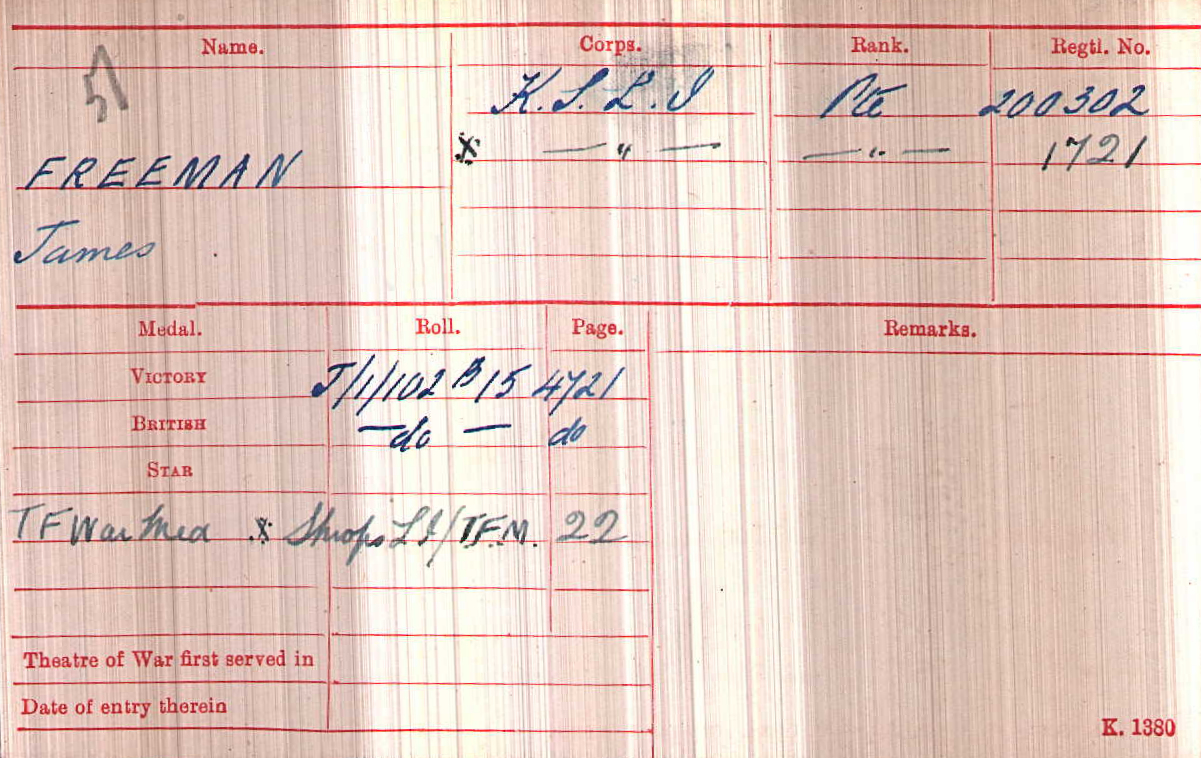 Name. Corps. Rank. Regtl. No.
51
K.S.L.I Pte 200302
x — " — — " — 1721
FREEMAN
James
Medal. Roll. Page. Remarks.
VICTORY J/1/102 B15 4721
BRITISH — do — do
STAR
TF War Med x Shrops LI/TFM. 22
Theatre of War first served in
Date of entry therein
K. 1380